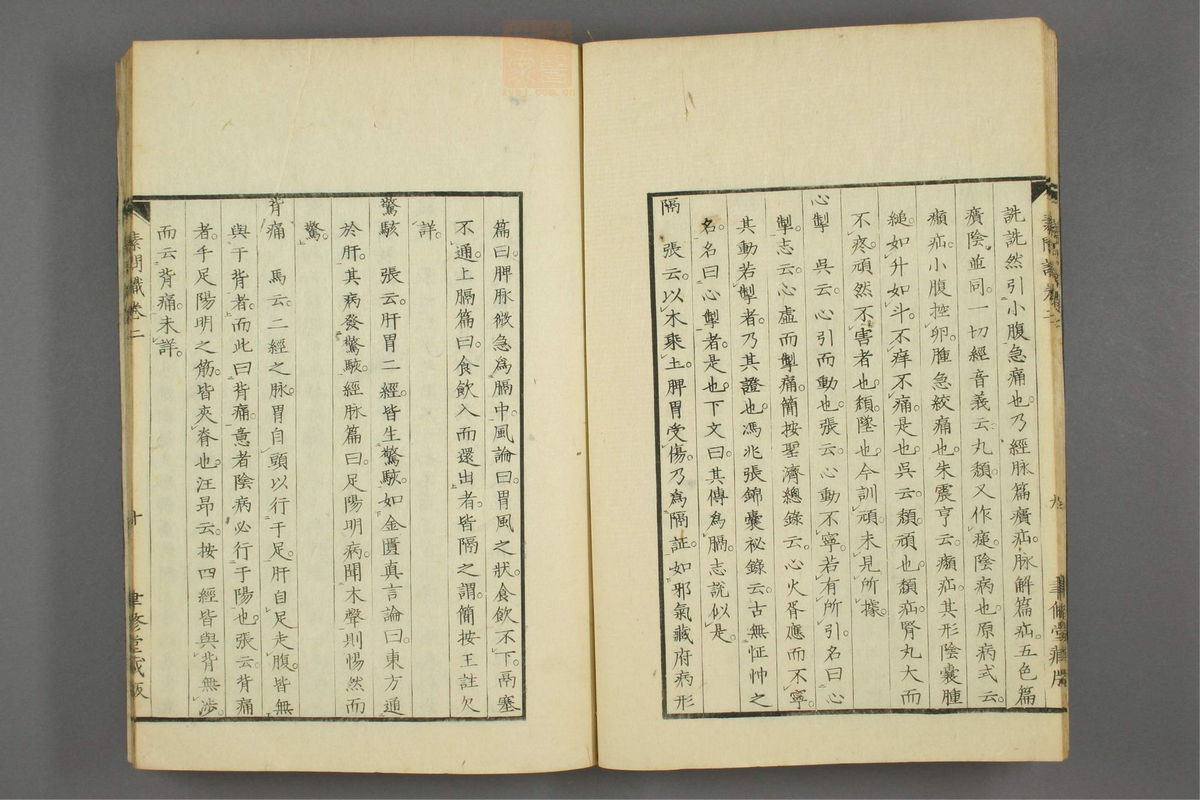 詵詵然引小腹急痛也乃經脉篇㿉疝脉解篇疝五色篇
㿉陰並同一切經音義云丸頹又作㾽陰病也原病式云
㿗疝小腹控卵腫急絞痛也朱震亨云㿗疝其形陰囊腫
縋如升如斗不痒不痛是也吳云頹頑也頹疝腎丸大而
不疼頑然不害者也頹墜也今訓頑未見所據
心掣　吳云心引而動也張云心動不寧若有所引名曰心
掣志云心虛而掣痛簡按聖濟總錄云心火胥應而不寧
其動若掣者乃其證也馮兆張錦囊祕錄云古無怔忡之
名名曰心掣者是也下文曰其傳爲膈志說似是
隔　張云以木乘土脾胃受傷乃爲隔証如邪氣藏府病形
素問識卷二
九
聿修堂藏版
篇曰脾脉微急爲膈中風論曰胃風之狀食飲不下鬲塞
不通上膈篇曰食飲入而還出者皆隔之謂簡按王註欠
詳
驚駭　張云肝胃二經皆生驚駭如金匱真言論曰東方通
於肝其病發驚駭經脉篇曰足陽明病聞木聲則惕然而
驚
背痛　馬云二經之脉胃自頭以行于足肝自足走腹皆無
與于背者而此曰背痛意者陰病必行于陽也張云背痛
者手足陽明之筋皆夾脊也汪昂云按四經皆與背無涉
而云背痛未詳
素問識卷二
十
聿修堂藏版